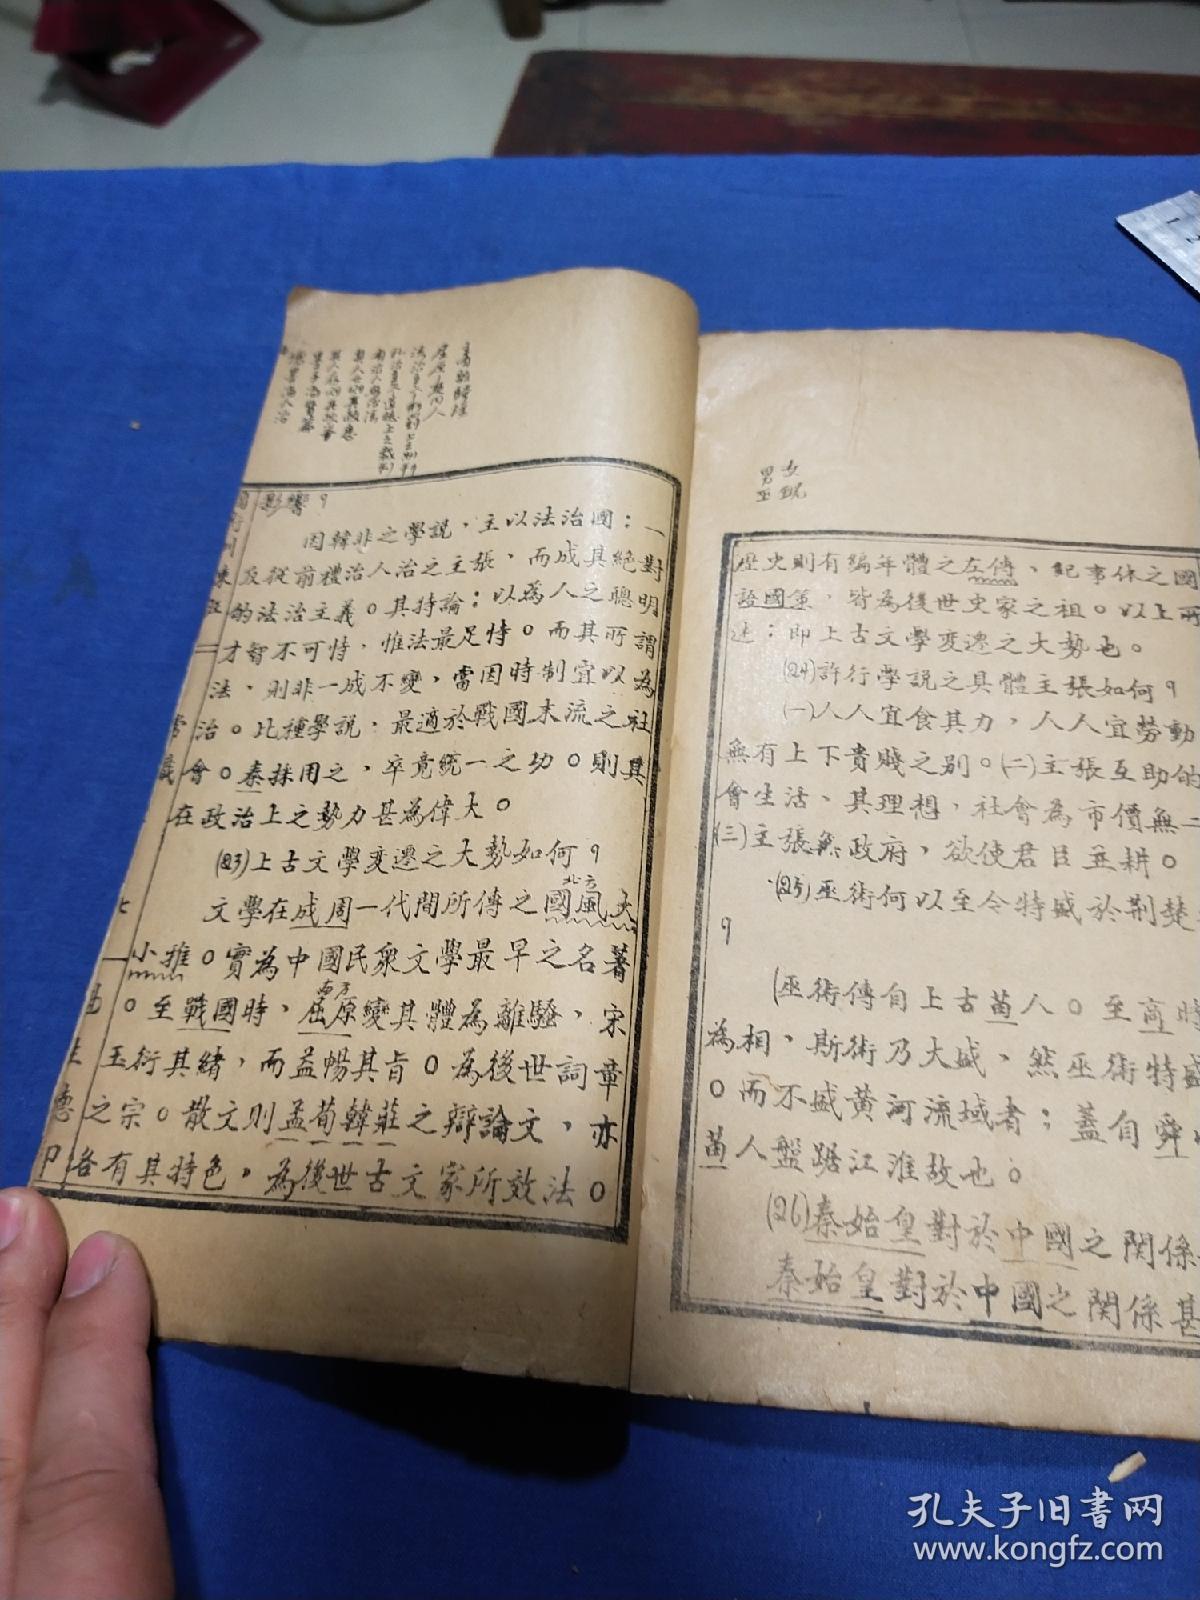 影響?
因韓非之學説,主以法治國:一對
反從前禮治人治之主張,而成其絶
的法治主義。其持論:以為人之聰明
才智不可恃,惟法最足恃。而其所謂
法,則非一成不變,當因時制宜以為
治。此種學説,最適於戰國末流之社
會。秦採用之,卒竟統一之功。則其
在政治上之勢力甚為偉大。
(23)上古文學変遷之大勢如何?
北方
文學在成周一代間所傳之國風大
小雅。實為中國民衆文學最早之名著
南方
。至戰國時,屈原變其體為離騷,宋
玉衍其緒,而益暢其旨。為後世詞章
之宗。散文則孟荀韓莊之辯論文,亦
各有其特色,為後世古文家所效法。
女覡
男巫
歴史則有編年體之左傳、紀事体之國
語國策,皆為後世史家之祖。以上所
述:即上古文學変遷之大勢也。
(24)許行學説之具體主張如何?
(一)人人宜食其力,人人宜勞動
無有上下貴賤之别。(二)主張互助的
會生活、其理想,社會為市價無二
(三)主張無政府,欲使君臣並耕。
(25)巫術何以至今特盛於荆楚
?
(巫術傳自上古苗人。至商時
為相,斯術乃大盛、然巫術特盛
。而不盛黄河流域者;蓋自舜
苗人盤踞江淮故也。
(26)秦始皇對於中國之関係
秦始皇對於中國之関係甚
孔夫子旧書网
www.kongfz.com